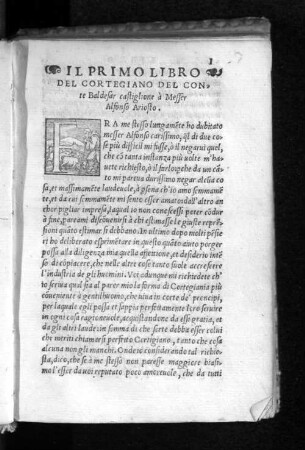 1
IL PRIMO LIBRO
DEL CORTEGIANO DEL CON-
te Baldesar castiglione à Messer
Alfonso Ariosto.
FRA me stesso lungamẽte ho dubitato
messer Alfonso carissimo, ql di due co
se piu difficil mi fusse, ò il negarui quel,
che cõ tanta instanza piu uolte m'ha-
uete richiesto, ò il farlo: pche da un cã-
to mi parea durissimo negar alcũa co-
sa, et massimamẽte laudeuole, à psona ch'io amo sommamẽ-
te, et da cui sommamẽte mi sento esser amato: dall'altro an
chor pigliar impresa, la qual io non conoscessi poter cõdur
à fine, pareami disconuenirsi à chi estimasse le giuste repren-
sioni quãto estimar si debbano. In ultimo dopo molti pẽsie-
ri ho deliberato esperimẽtare in questo quãto aiuto porger
possa alla diligenza mia quella affettione, et desiderio inten
so di cõpiacere, che nelle altre cose tanto suole accrescere
l'industria de gli huomini. Voi adunque mi richiedete ch'
io scriua qual sia al parer mio la forma di Cortegiania piu
cõueniente à gentilhuomo, che uiua in corte de' prencipi,
per laquale egli possa et sappia perfettamente loro seruire
in ogni cosa ragioneuole, acquistandone da essi gratia, et
da gli altri laude: in somma di che sorte debba esser colui
che meriti chiamarsi perfetto Cortegiano, tanto che cosa
alcuna non gli manchi. Onde io considerando tal richie-
sta, dico, che se à me stesso non paresse maggiore biasi-
mo l'esser da uoi reputato poco amoreuole, che da tutti